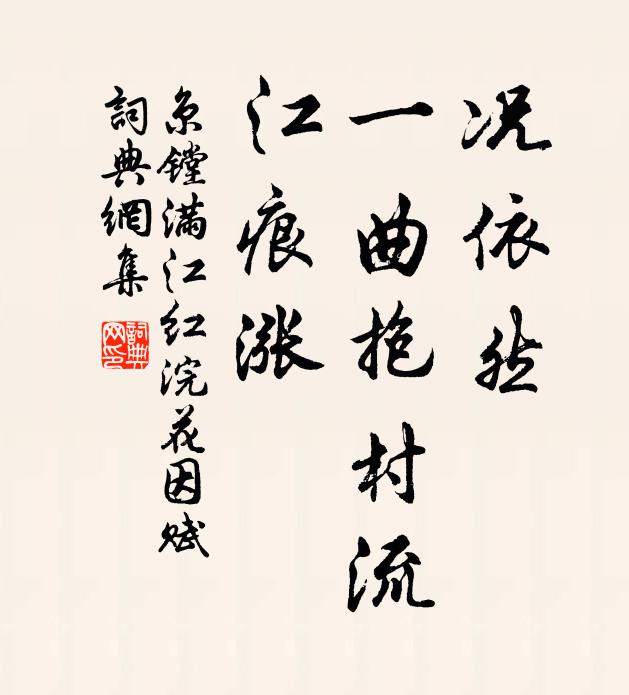 况依然
一曲抱村流
江痕涨
京镗满江红浣花因赋
詞典網集
詞典网印